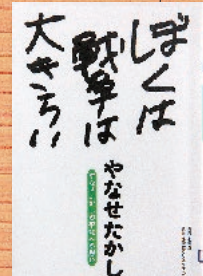 ぼくは
戦争は
大きらい
やなせたかし